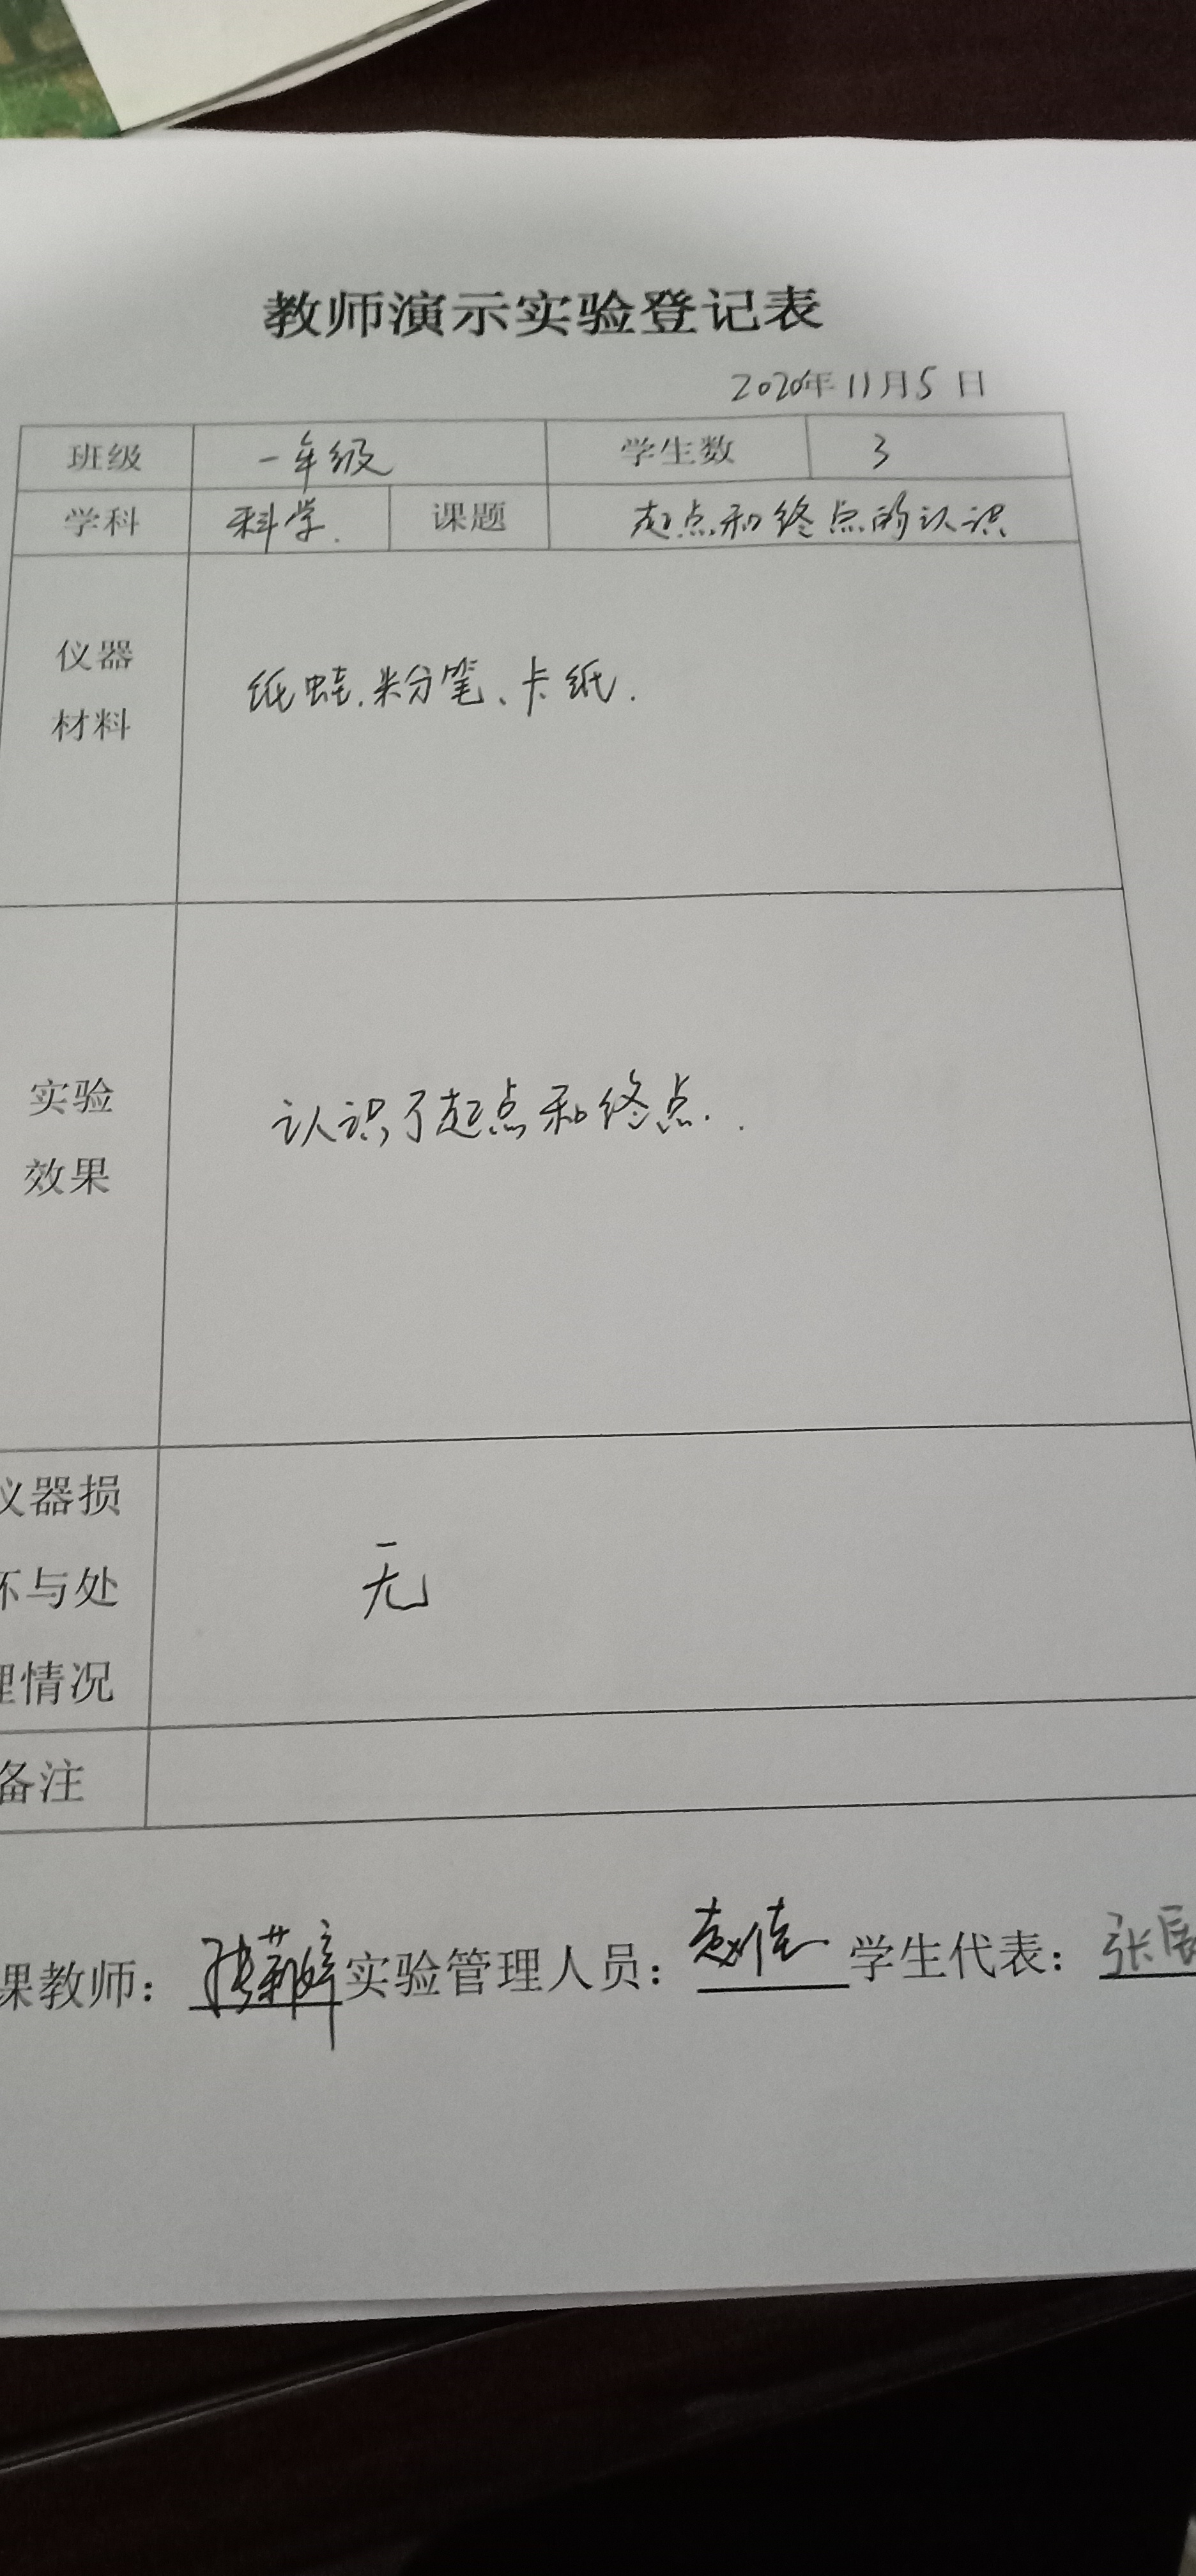 教师演示实验登记表
2020年11月5日
班级 一年级 学生数 3
学科 科学. 课题 起点和终点的认识
仪器
材料
纸蛙、粉笔、卡纸.
实验
效果
认识了起点和终点.
仪器损
坏与处
理情况
无
备注
课教师： 实验管理人员： 学生代表：张